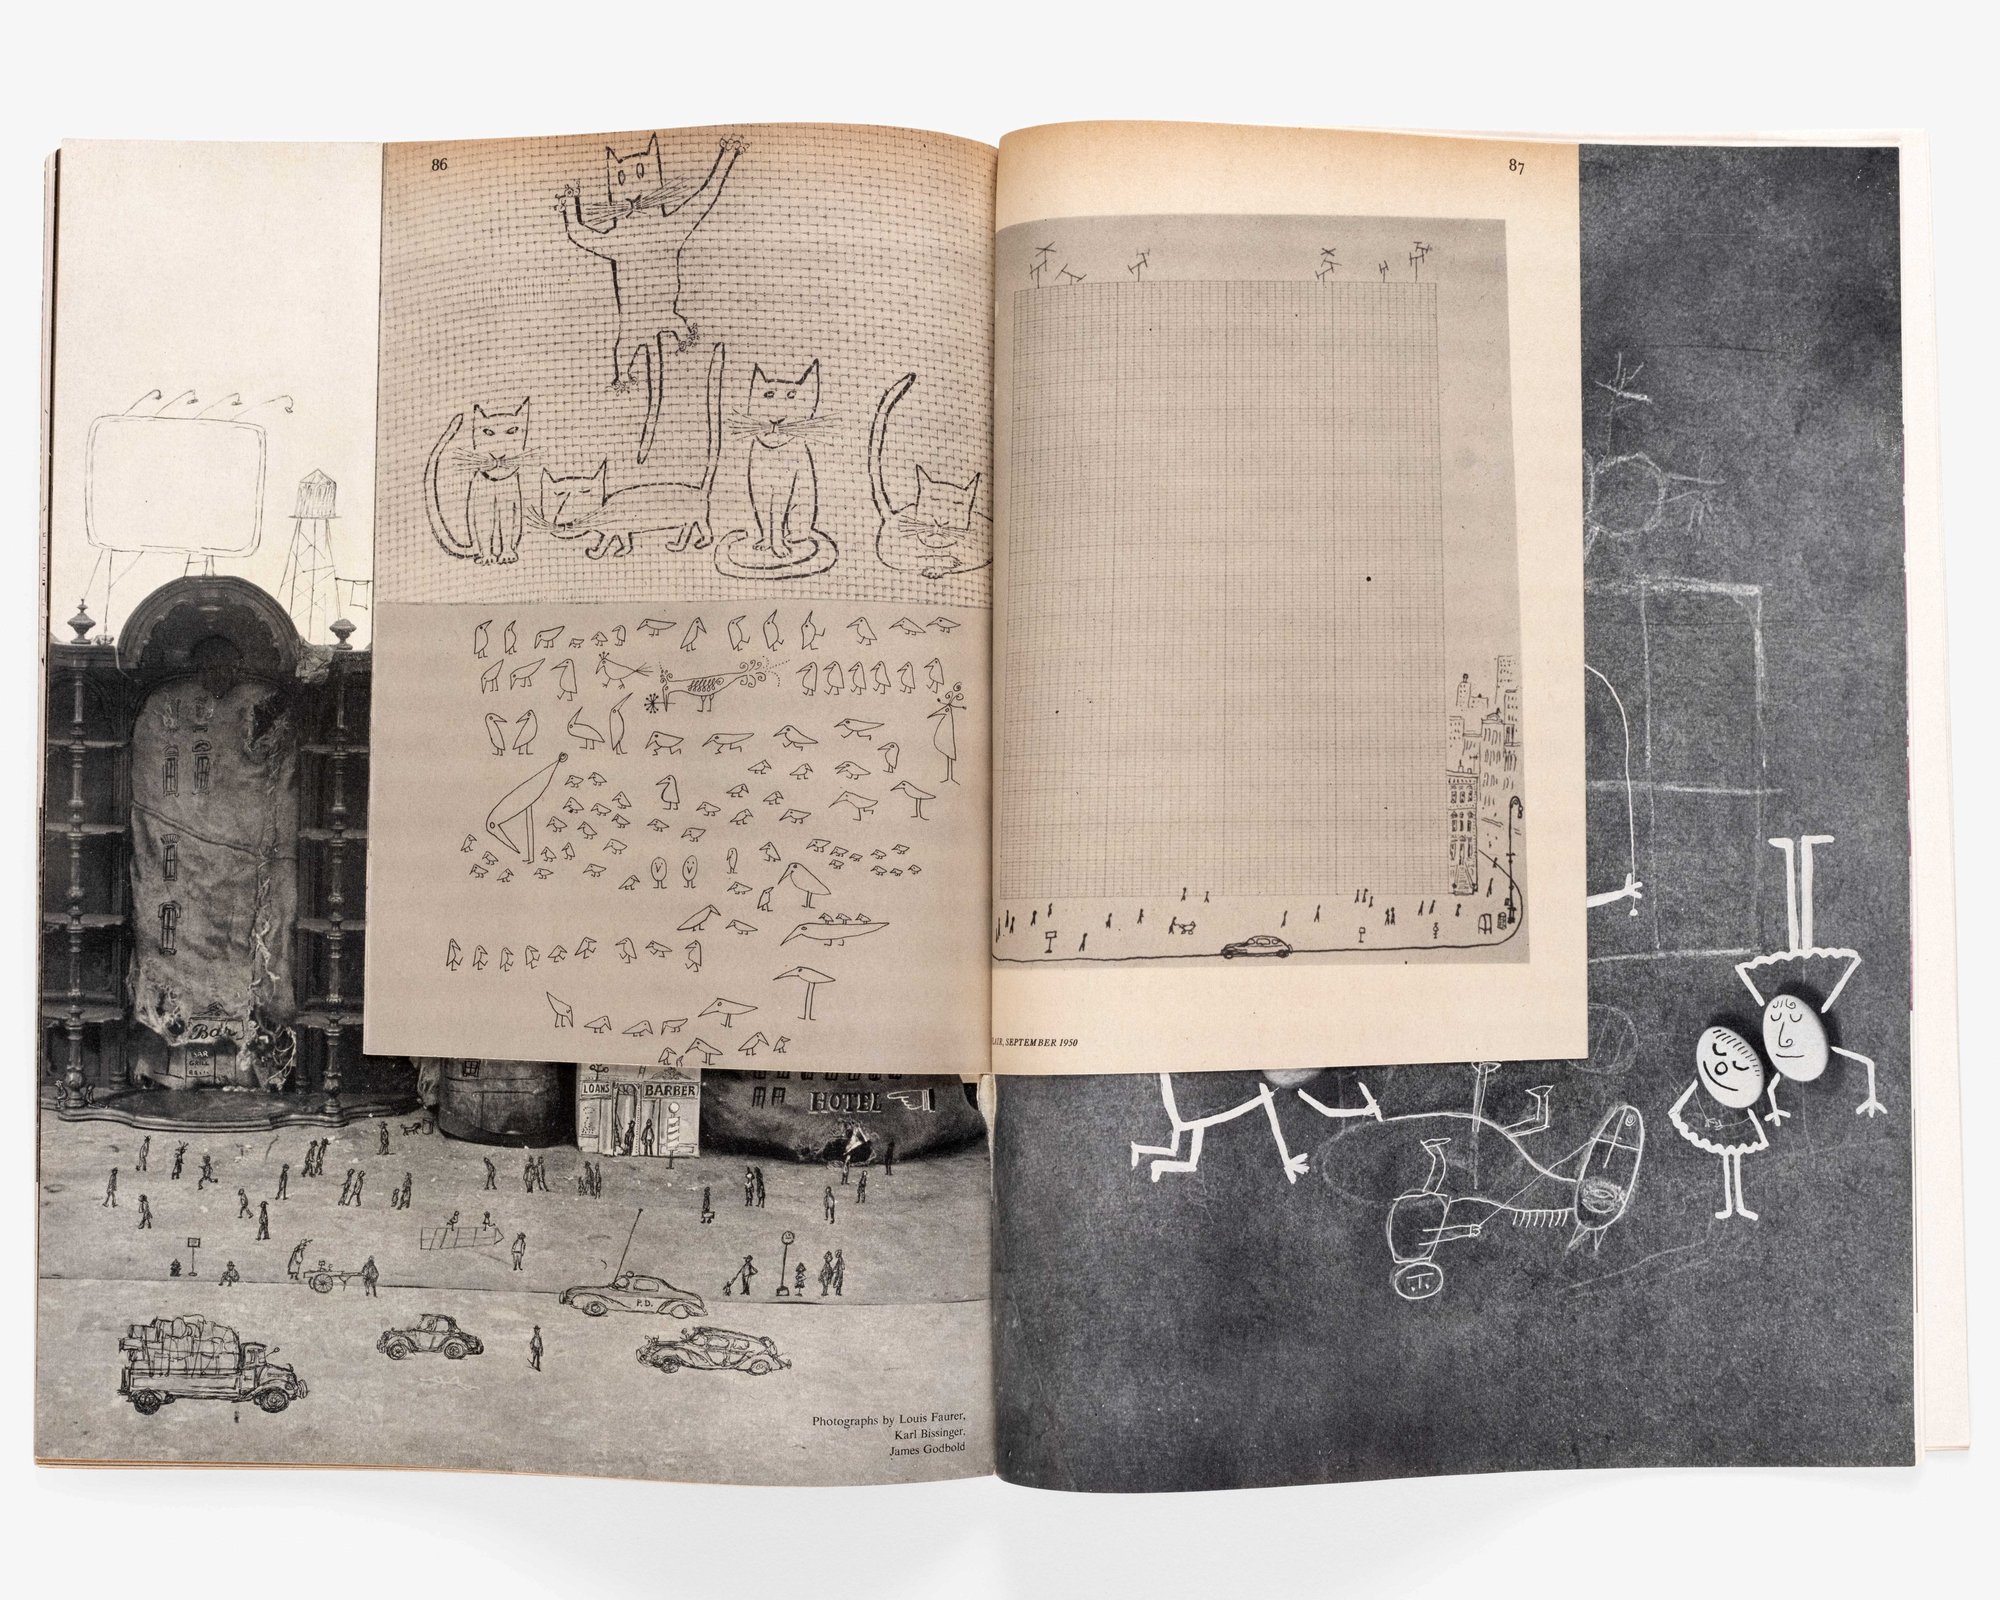 86
87
LAIR, SEPTEMBER 1950
Bar
BAR
GRILL
LOANS
BARBER
HOTEL
P.D.
Photographs by Louis Faurer,
Karl Bissinger,
James Godbold